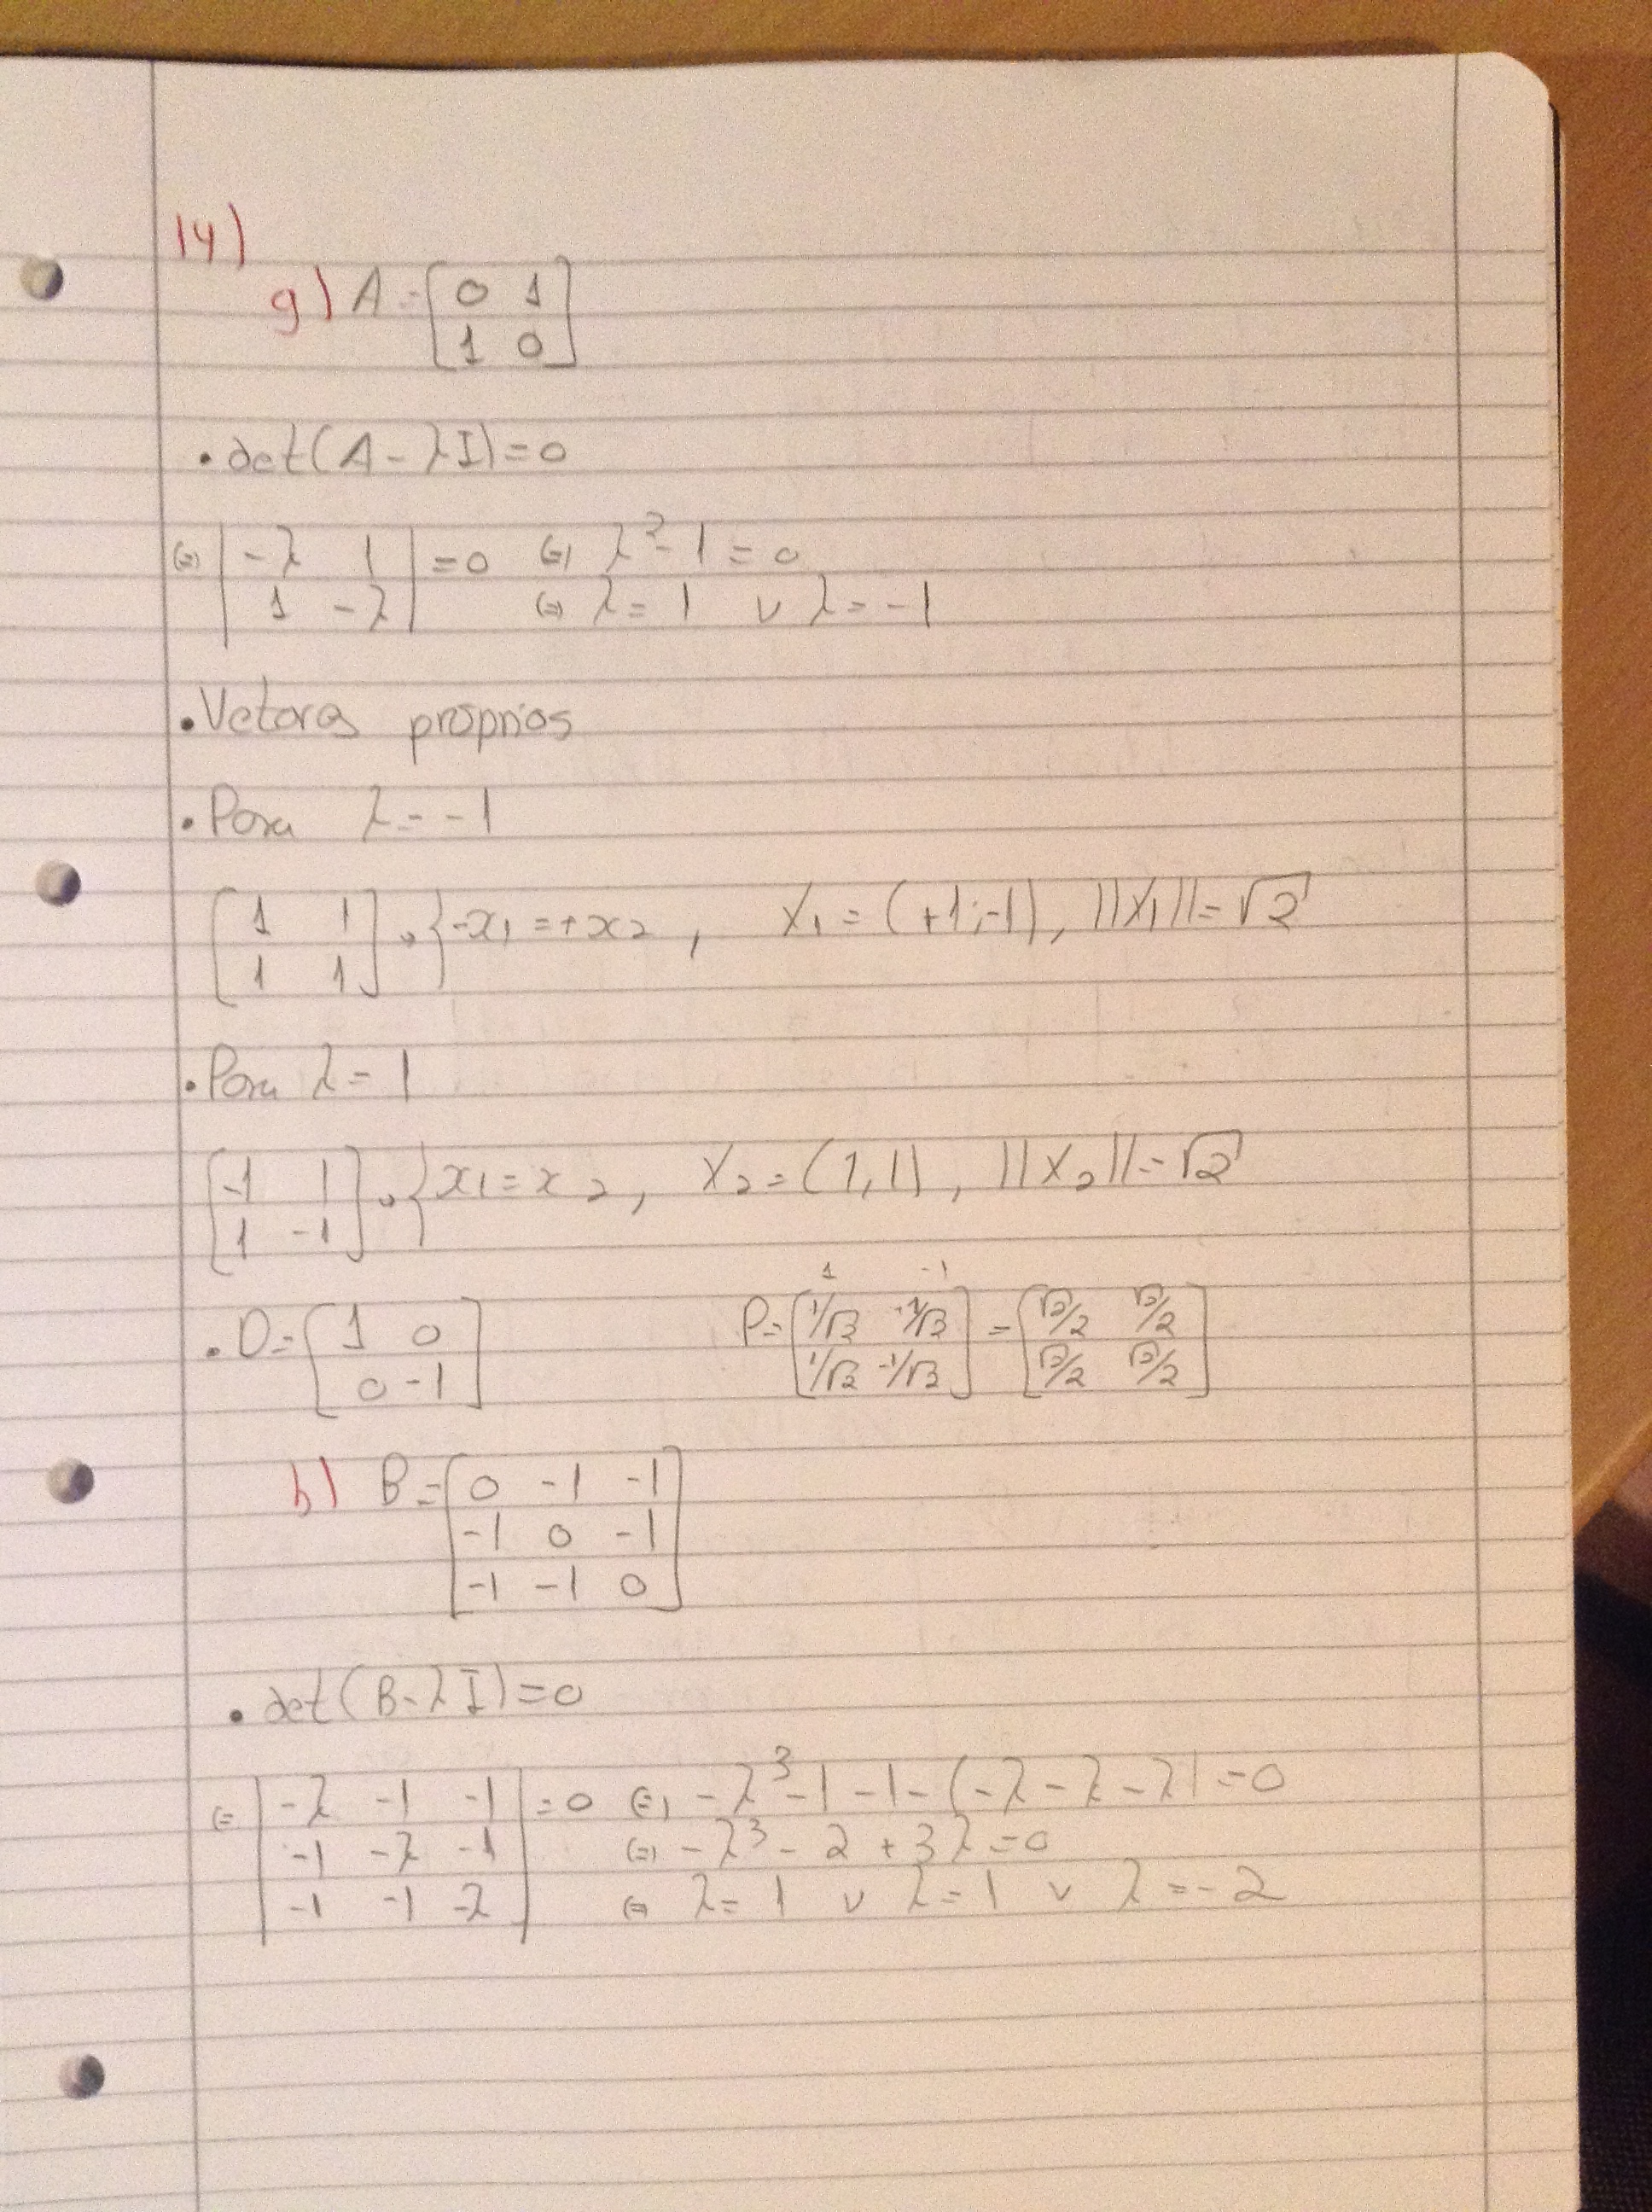 14)
g) A = [0 1
1 0]
• det(A - λI) = 0
(=) |-λ 1| = 0 (=) λ² - 1 = 0
|1 -λ| (=) λ = 1 ∨ λ = -1
• Vetores próprios
• Para λ = -1
[1 1
1 1] → {-x₁ = +x₂, X₁ = (+1; -1), ||X₁|| = √2
• Para λ = 1
[-1 1
1 -1] → {x₁ = x₂, X₂ = (1, 1), ||X₂|| = √2
1 -1
• D = [1 0 P = [1/√2 -1/√2 = [√2/2 √2/2
0 -1] 1/√2 -1/√2] √2/2 √2/2]
b) B = [0 -1 -1
-1 0 -1
-1 -1 0]
• det(B - λI) = 0
(= |-λ -1 -1| = 0 (=) -λ³ - 1 - 1 - (-λ - λ - λ) = 0
|-1 -λ -1| (=) -λ³ - 2 + 3λ = 0
|-1 -1 -λ| (=) λ = 1 ∨ λ = 1 ∨ λ = -2